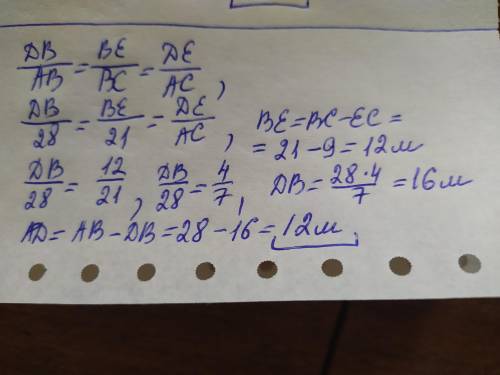 DB/AB = BE/BC = DE/AC,
DB/28 = BE/21 = DE/AC, BE=BC-EC=
=21-9=12м
DB/28 = 12/21, DB/28 = 4/7, DB = 28·4/7 = 16м
AD= AB-DB=28-16=12м.